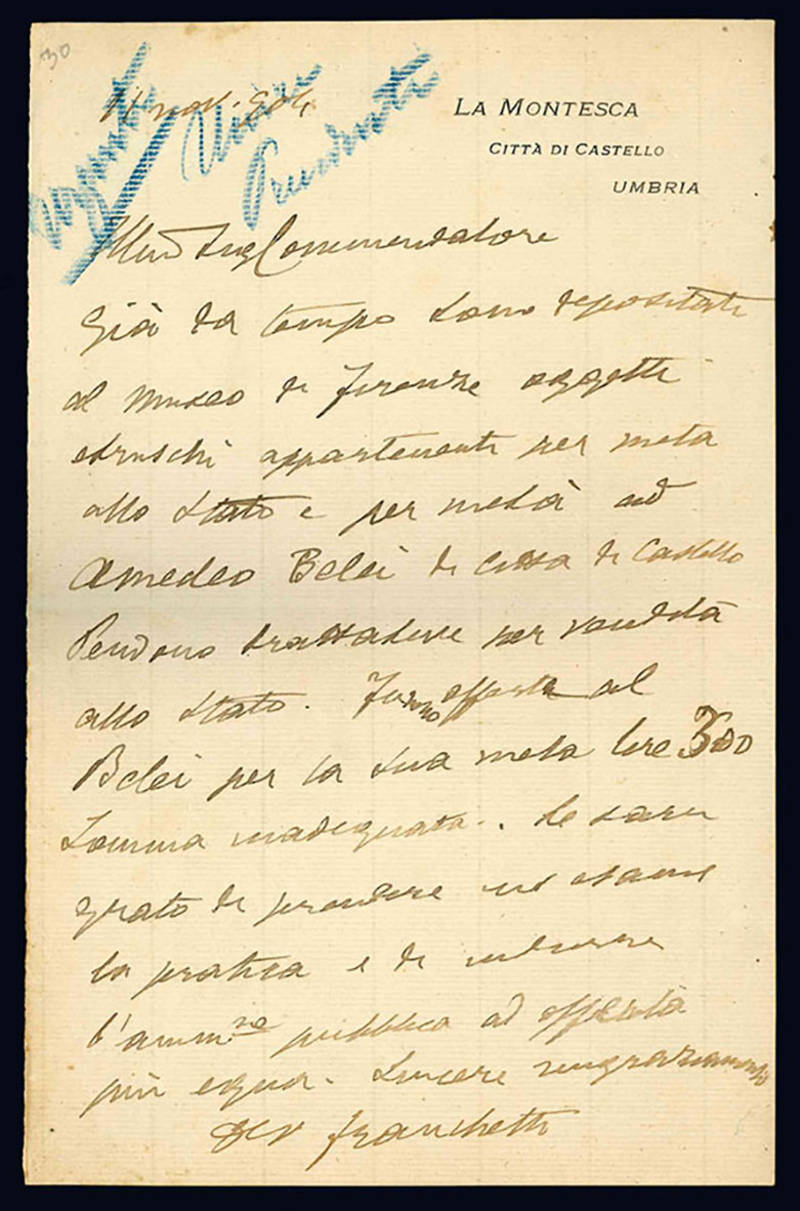 30
11 nov. 904
Urgente
Precedenti
LA MONTESCA
CITTÀ DI CASTELLO
UMBRIA
Commendatore
Già da tempo sono depositati
al museo di Firenze oggetti
etruschi appartenenti per metà
allo Stato e per metà ad
Amedeo Belei di Città di Castello
Pendono trattative per vendita
allo Stato. Furono offerte al
Belei per la sua metà lire 300
Somma inadeguata. Le sarei
grato di prendere in esame
la pratica e di indurre
l'ammne pubblica ad offerta
più equa. Sincere ringraziamento
Franchetti